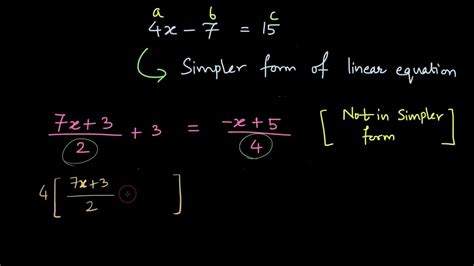 a b c
4x - 7 = 15
Simpler form of linear equation
(7x+3)/2 + 3 = (-x+5)/4 [Not in Simpler form]
4[(7x+3)/2 ]